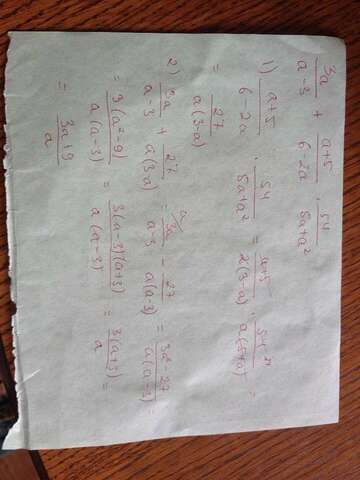 3a/(a-3) + (a+5)/(6-2a) · 54/(5a+a²)
1) (a+5)/(6-2a) · 54/(5a+a²) = (a+5)/(2(3-a)) · 54²⁷/(a(5+a)) =
= 27/(a(3-a))
2) 3a/(a-3) + 27/(a(3-a)) = ᵃ/3a/(a-3) - 27/(a(a-3)) = (3a²-27)/(a(a-3)) =
= 3(a²-9)/(a(a-3)) = 3(a-3)(a+3)/(a(a-3)) = 3(a+3)/a =
= (3a+9)/a